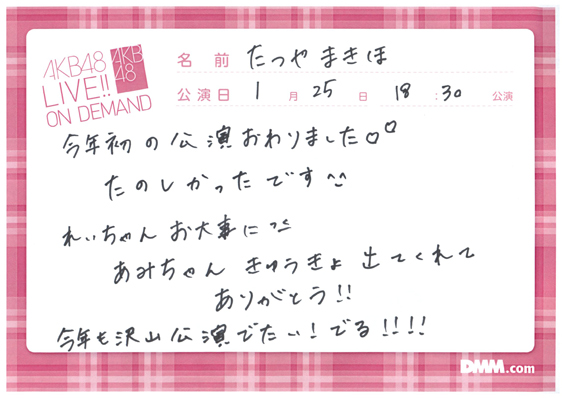 AKB48
LIVE!!
ON DEMAND
AKB
48
名前 たつや まきほ
公演日 1月25日 18:30公演
今年初の公演おわりました♡♡
たのしかったです^^
れいちゃん お大事に
あみちゃん きゅうきょ 出てくれて
ありがとう!!
今年も沢山公演でたい！でる!!!!
DMM.com